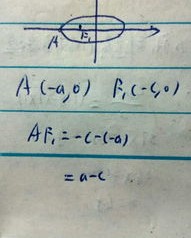 A F₁
A(-a,0) F₁(-c,0)
AF₁=-c-(-a)
=a-c